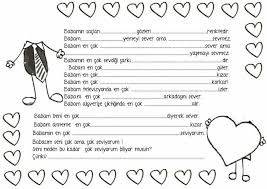 Babamın saçları ............ gözleri ............ renktedir.
Babam ............ yemeyi sever ama ............ sevmez.
Babam en çok ............ sever ama
............ yapmayı sevmez.
Babamın en çok sevdiği şarkı ............ dir.
Babam en çok ............ güler.
Babam en çok ............ kızar.
Babam en çok ............ korkar.
Babamın en çok ............ televizyonda izler.
Babam en çok ............ arkadaşını sever.
Babam alışverişe çıktığında en çok ............ alır.
Babam beni en çok ............ diyerek sever.
Babam anneme en çok ............ kızar
Babasının en çok
Babam en çok seviyorum
Seni neden bu kadar çok seviyorum biliyor musun?
Çünkü